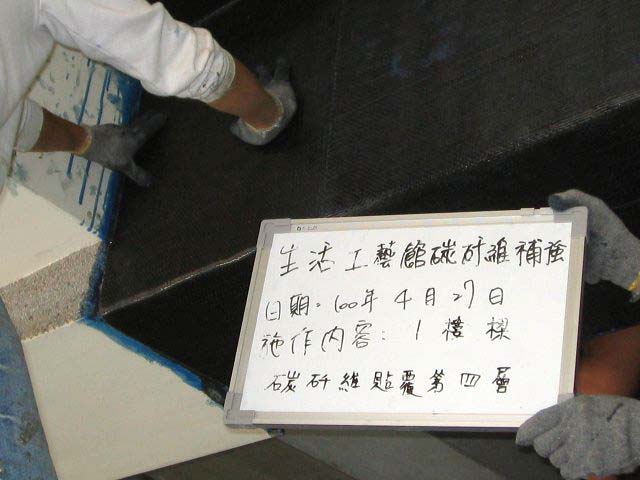 生活工藝館碳矸維補強
日期:100年4月27日
施作內容:1樓樑
碳矸維貼覆第四層